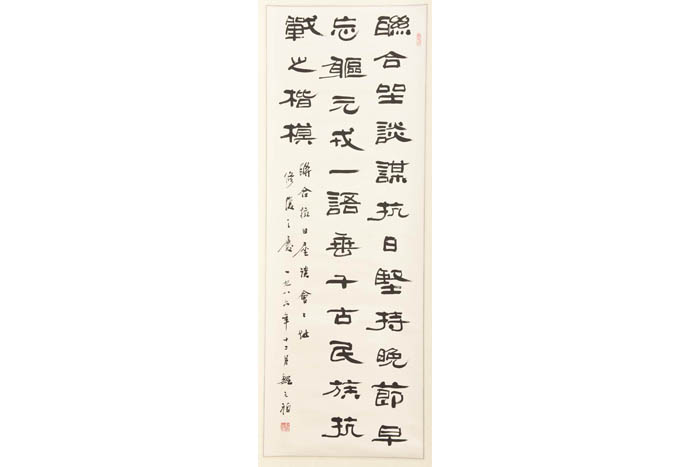 聯合坐談謀抗日堅持晚節早
忘軀元戎一語垂千古民族抗
戰之楷模
聯合抗日座談會〻址
修復之慶 一九八六年十二月